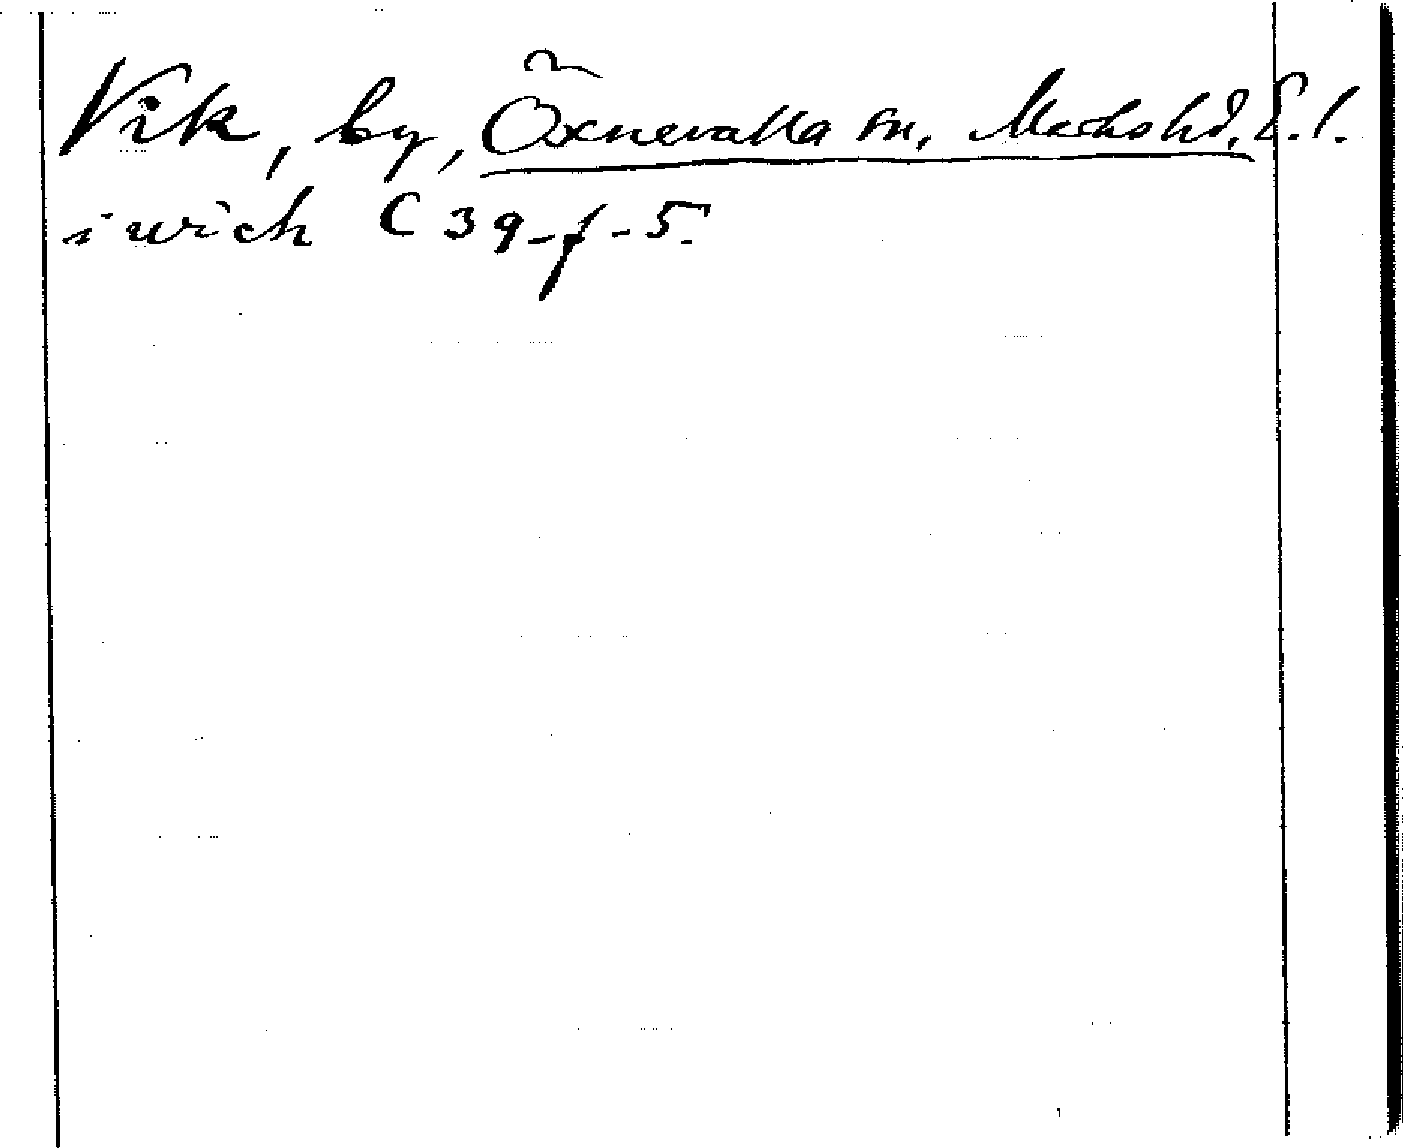 Vik, by, Öxnevalla sn, Marks hd. Ä. l.
i wich C 39-f-5.